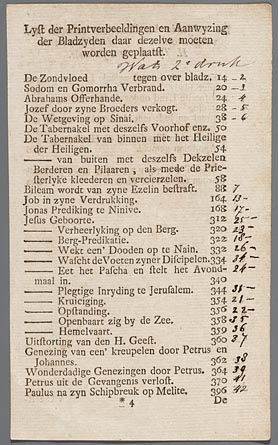 Lyst der Printverbeeldingen en Aanwyzing
der Bladzyden daar dezelve moeten
worden geplaatst.
2e druk
De Zondvloed tegen over bladz. 14 - 2
Sodom en Gomorrha Verbrand. 20 - 3
Abrahams Offerhande. 24 - 4
Jozef door zyne Broeders verkogt. 28 - 5
De Wetgeving op Sinai. 38 - 6
De Tabernakel met deszelfs Voorhof enz. 50
De Tabernakel van binnen met het Heilige
der Heiligen. 54
—— van buiten met deszelfs Dekzelen
Berderen en Pilaaren, als mede de Prie-
sterlyke kleederen en vercierzelen. 58
Bileam wordt van zyne Ezelin bestraft. 88 7
Job in zyne Verdrukking. 164 13-
Jonas Prediking te Ninive. 168 17-
Jesus Geboorte. 312 25-
—— Verheerlyking op den Berg. 320 23-
—— Berg-Predikatie. 322 18-
—— Wekt een' Dooden op te Nain. 332 26-
—— Wascht de Voeten zyner Discipelen. 334 34-
—— Eet het Pascha en stelt het Avond-
maal in. 340
—— Plegtige Inryding te Jerusalem. 344 31-
—— Kruiciging. 354 21-
—— Opstanding. 356 22-
—— Openbaart zig by de Zee. 358 35
—— Hemelvaart. 359 36
Uitstorting van den H. Geest. 360 37
Genezing van een' kreupelen door Petrus en
Johannes. 362 38
Wonderdadige Genezingen door Petrus. 364 39
Petrus uit de Gevangenis verlost. 370 41
Paulus na zyn Schipbreuk op Melite. 396 42
* 4 De